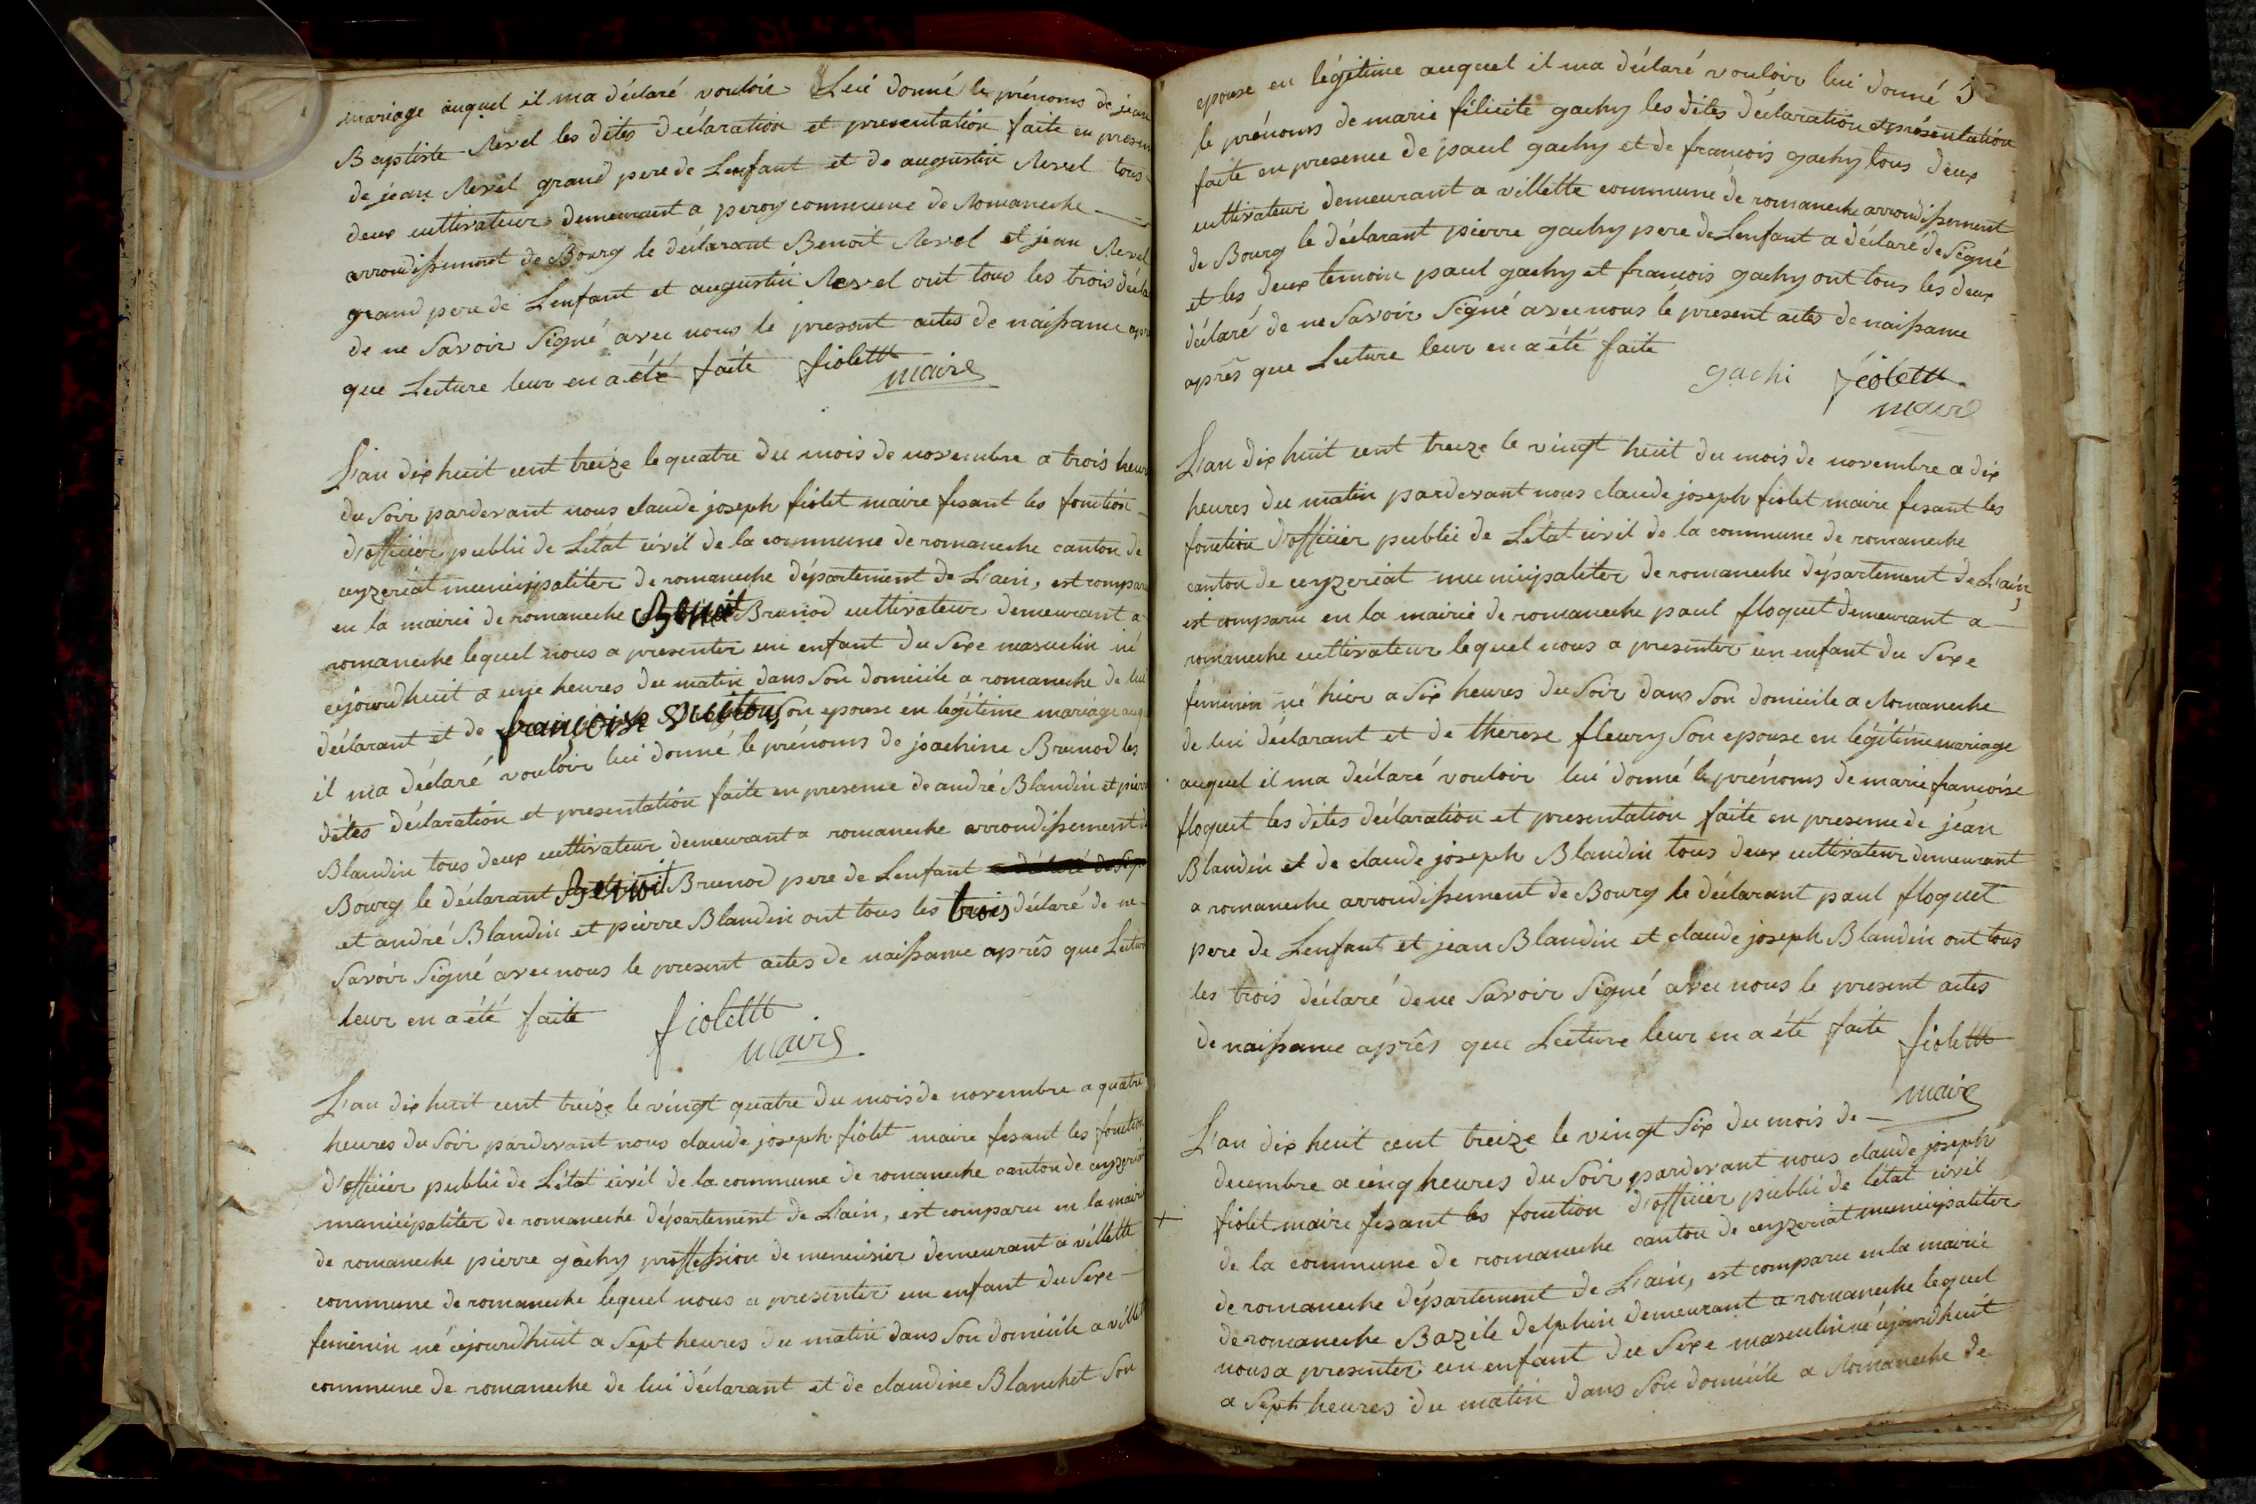 mariage auquel il ma déclaré vouloir Lui donné les prénoms de jean
Baptiste Revel les dites déclaration et presentation faite en presen
de jean Revel grand pere de Lenfant et de augustin Revel tous
deux cultivateur demeurant a peroy commune de Romaneche
arrondissement de Bourg le déclarant Benoit Revel et jean Revel
grand pere de Lenfant et augustin Revel ont tous les trois décla
de ne Savoir Signé avec nous le present actes de naissance apr
que Lecture leur en a été faite fiolet
maire
L'an dix huit cent treize le quatre du mois de novembre a trois heur
du Soir pardevant nous claude joseph fiolet maire fesant les fonction
d'officier public de L'état civil de la commune de romaneche canton de
ceyzeriat municipaliter de romaneche département de L'ain, est compar
en la mairie de romaneche Benoit Brunod cultivateur demeurant a
romaneche lequel nous a presenter un enfant du Sexe masculin né
cejourdhuit a une heures du matin dans Son domicile a romaneche de lui
déclarant et de francoise Son epouse en légitime mariage auq
il ma déclaré vouloir lui donné le prénoms de joachine Brunod les
dites déclaration et presentation faite en presence de andré Blandin et pierr
Blandin tous deux cultivateur demeurant a romaneche arrondissement d
Bourg le déclarant Benoit Brunod pere de Lenfant
et andré Blandin et pierre Blandin ont tous les trois déclaré de ne
Savoir Signé avec nous le present actes de naissance après que Lectur
leur en a été faite fiolet
maire
L'an dix huit cent treize le vingt quatre du mois de novembre a quatre
heures du Soir pardevant nous claude joseph fiolet maire fesant les fonction
d'officier public de L'état civil de la commune de romaneche canton de ceyzeriat
municipaliter de romaneche département de L'ain, est comparu en la mairie
de romaneche pierre gachy proffession de menuisier demeurant a villette
commune de romaneche lequel nous a presenter un enfant du Sexe
feminin né cejourdhuit a Sept heures du matin dans Son domicile a villet
commune de romaneche de lui déclarant et de claudine Blanchet Son
epouse en légitime auquel il ma déclaré vouloir lui donné
le prénoms de marie félicite gachy les dites déclaration et présentation
faite en presence de paul gachy et de francois gachy tous deux
cultivateur demeurant a villette commune de romaneche arrondissement
de Bourg le déclarant pierre gachy pere de Lenfant a déclaré de Signé
et les deux temoin paul gachy et francois gachy ont tous les deux
déclaré de ne Savoir Signé avec nous le present actes de naissance
après que Lecture leur en a été faite
gachi fiolet
maire
L'an dix huit cent treize le vingt huit du mois de novembre a dix
heures du matin pardevant nous claude joseph fiolet maire fesant les
fonction d'officier public de L'état civil de la commune de romaneche
canton de ceyzeriat municipaliter de romaneche département de L'ain,
est comparu en la mairie de romaneche paul floquet demeurant a
romaneche cultivateur lequel nous a presenter un enfant du Sexe
feminin né hier a Six heures du Soir dans Son domicile a Romaneche
de lui déclarant et de therese fleury Son epouse en légitime mariage
auquel il ma déclaré vouloir lui donné le prénoms de marie francoise
floquet les dites déclaration et presentation faite en presence de jean
Blandin et de claude joseph Blandin tous deux cultivateur demeurant
a romaneche arrondissement de Bourg le déclarant paul floquet
pere de Lenfant et jean Blandin et claude joseph Blandin ont tous
les trois déclaré de ne Savoir Signé avec nous le present actes
de naissance après que Lecture leur en a été faite fiolet
maire
L'an dix huit cent treize le vingt Six du mois de
decembre a cinq heures du Soir pardevant nous claude joseph
fiolet maire fesant les fonction d'officier public de l'état civil
de la commune de romaneche canton de ceyzeriat municipaliter
de romaneche département de L'ain, est comparu en la mairie
de romaneche Bazile delphin demeurant a romaneche lequel
nous a presenter un enfant du Sexe masculin né cejourdhuit
a Sept heures du matin dans Son domicile a Romaneche de